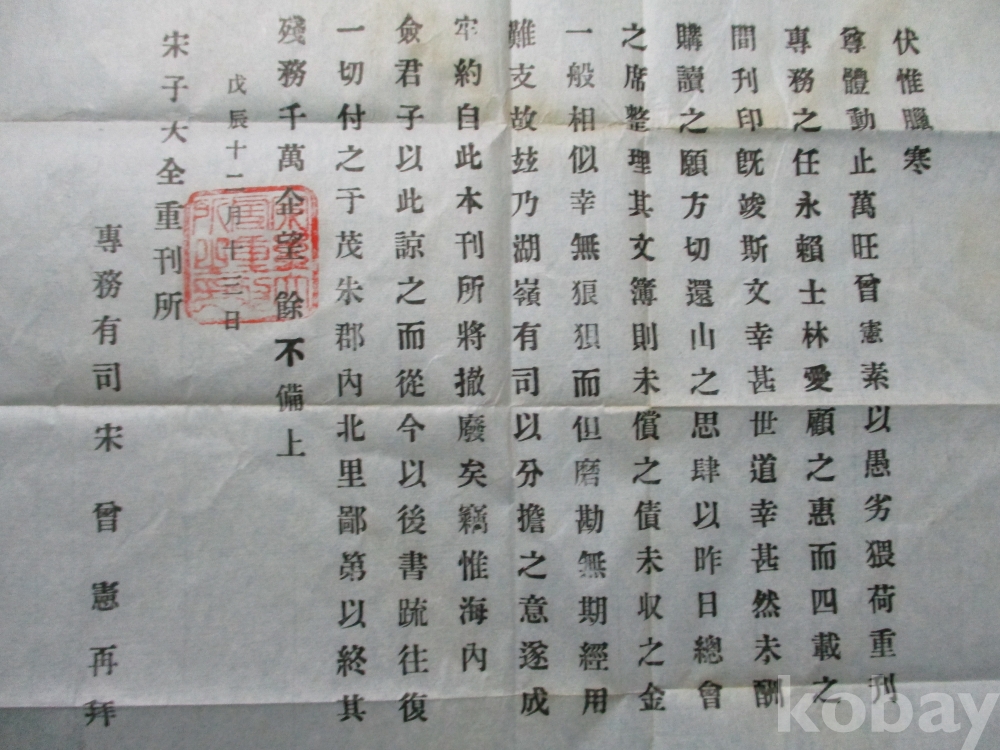 伏惟臘寒
尊體動止萬旺曾憲素以愚劣猥荷重刋
專務之任永賴士林愛顧之惠而四載之
間刊印旣竣斯文幸甚世道幸甚然未酬
購讀之願方切還山之思肆以昨日總會
之席整理其文簿則未償之債未收之金
一般相似幸無狼狽而但磨勘無期經用
難支故玆乃湖嶺有司以分擔之意遂成
牢約自此本刊所將撤廢矣竊惟海內
僉君子以此諒之而從今以後書䟽往復
一切付之于茂朱郡內北里鄙第以終其
殘務千萬企望餘不備上
戊辰十二月十三日
宋子大全重刊所
專務有司宋曾憲再拜
kobay